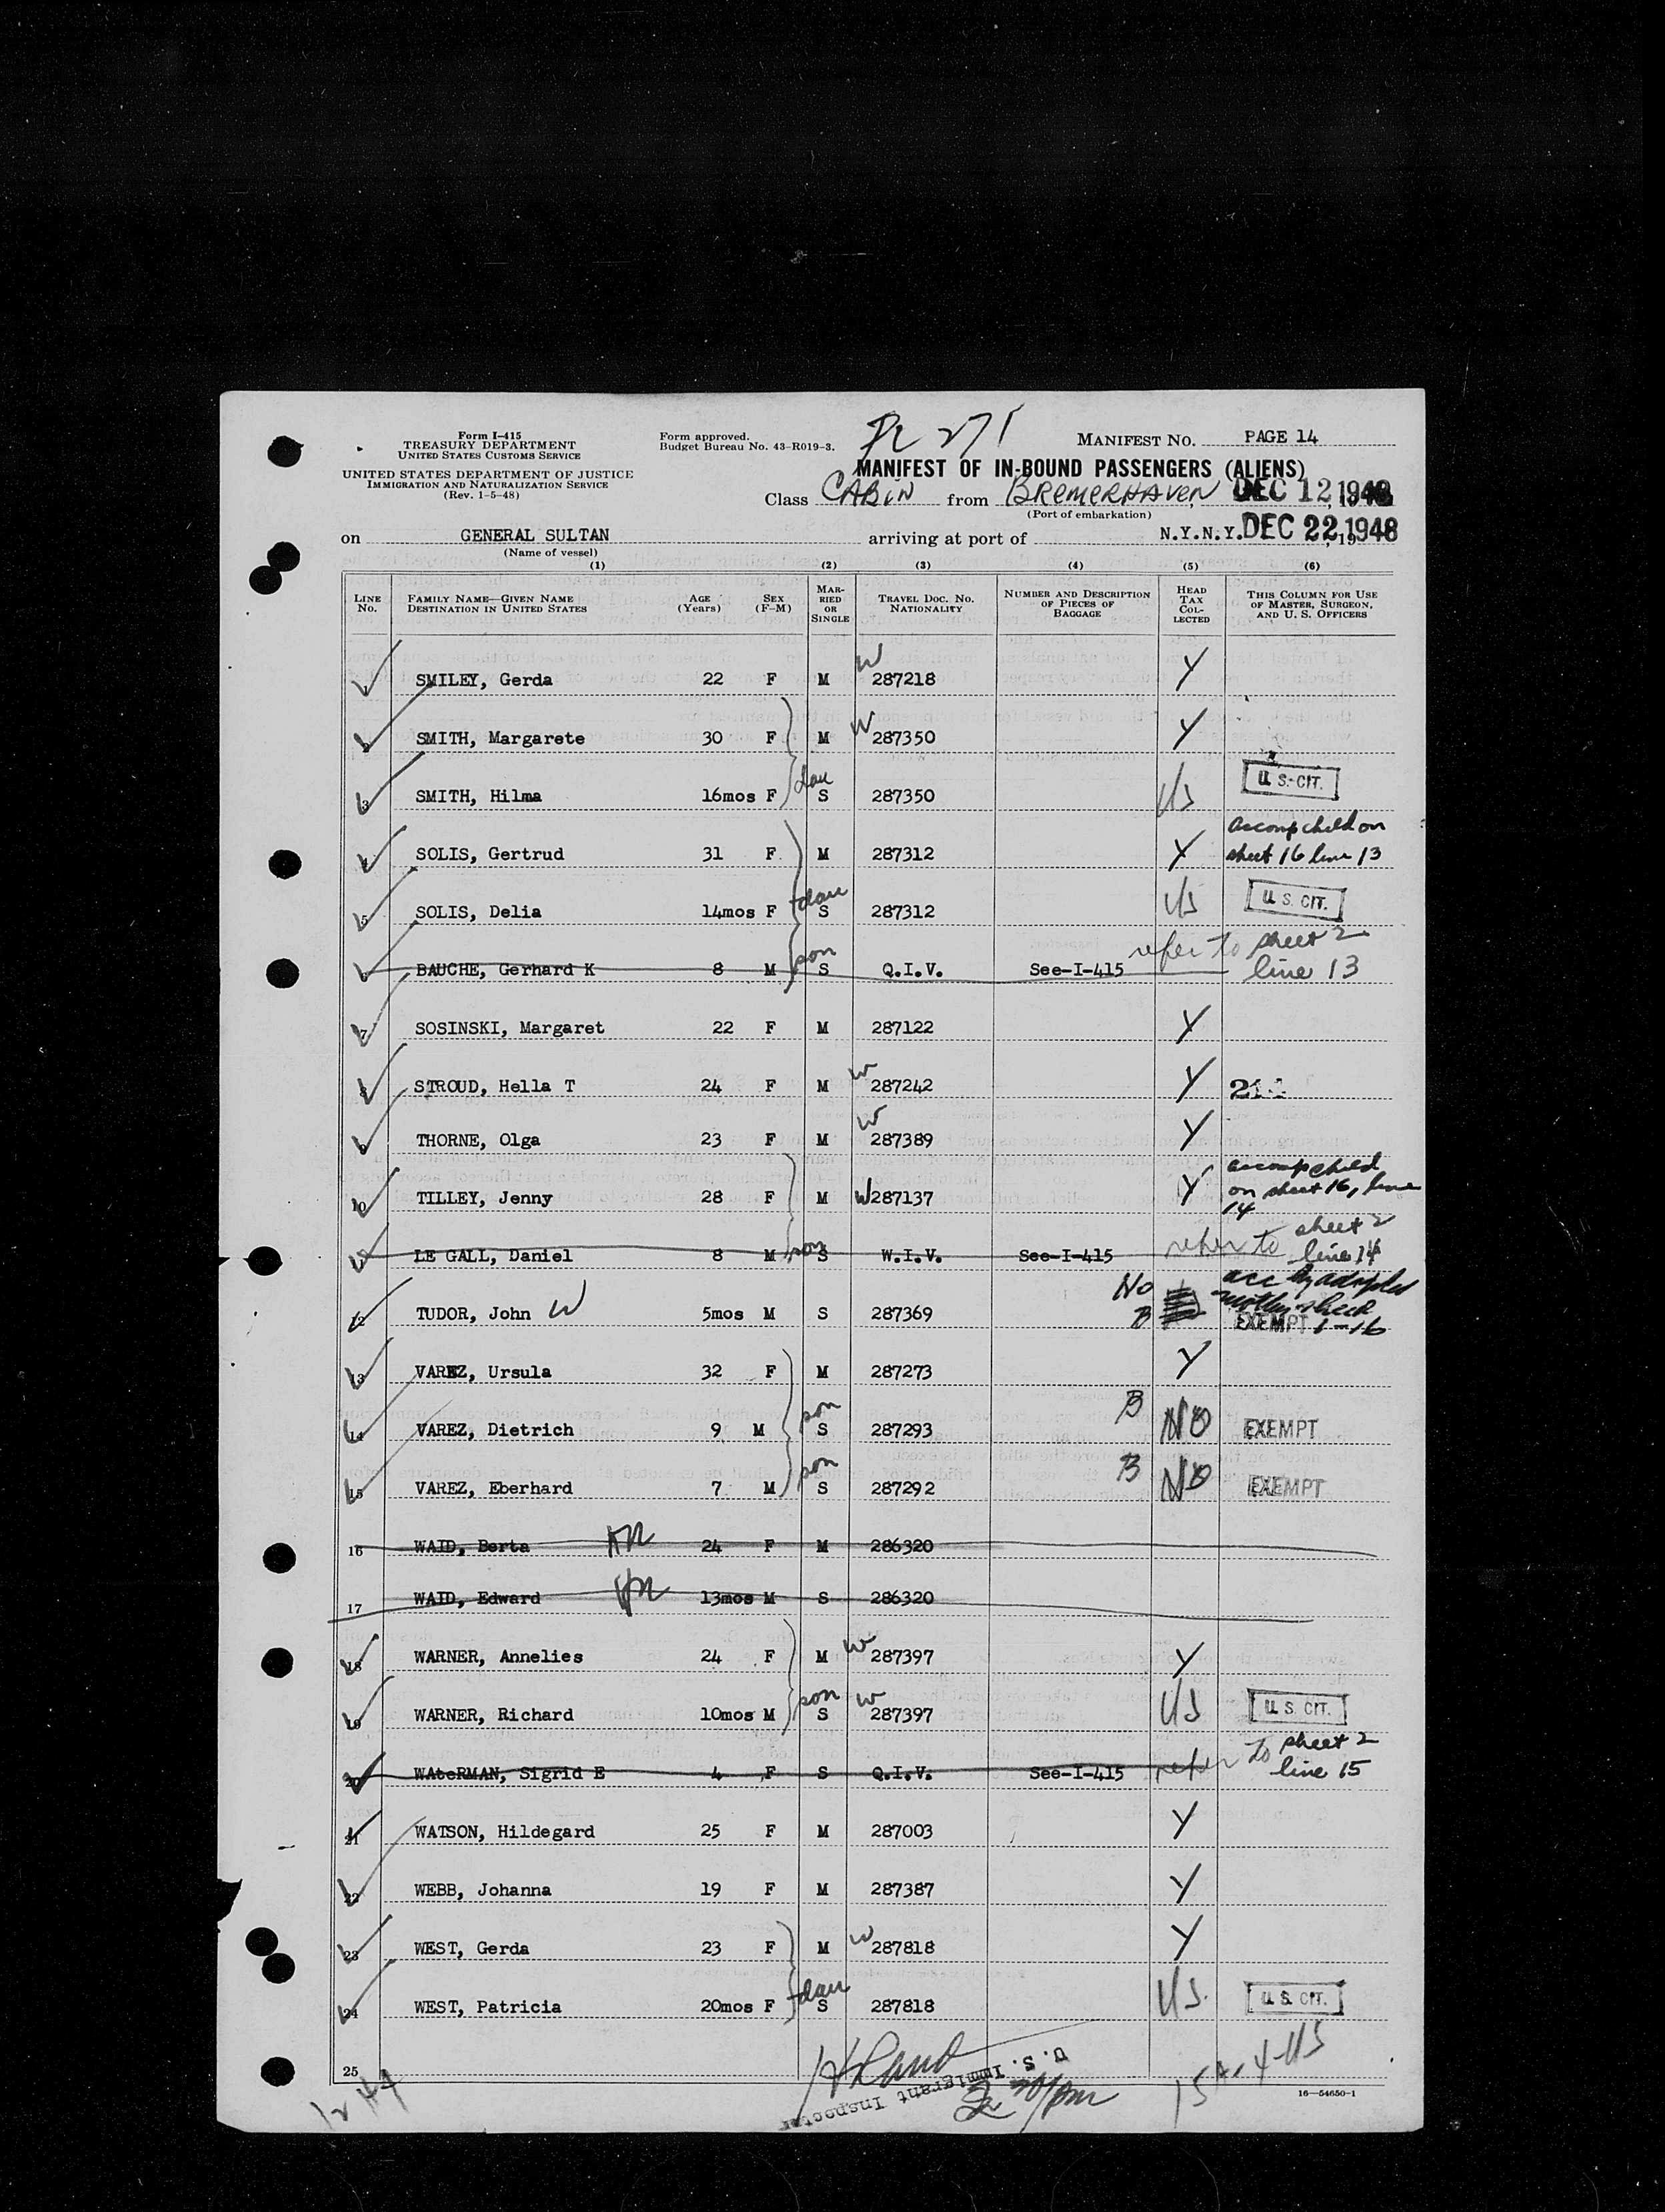 Form I-415
TREASURY DEPARTMENT
UNITED STATES CUSTOMS SERVICE
UNITED STATES DEPARTMENT OF JUSTICE
IMMIGRATION AND NATURALIZATION SERVICE
(Rev. 1-5-48)
Form approved.
Budget Bureau No. 43-R019-3.
271
MANIFEST NO. PAGE 14
MANIFEST OF IN-BOUND PASSENGERS (ALIENS)
Class CABIN from BREMERHAVEN, DEC 12 1948
(Port of embarkation)
on GENERAL SULTAN arriving at port of N.Y.N.Y. DEC 22 1948
(Name of vessel)
(1) (2) (3) (4) (5) (6)
LINE NO. FAMILY NAME—GIVEN NAME DESTINATION IN UNITED STATES AGE (Years) SEX (F-M) MARRIED OR SINGLE TRAVEL DOC. NO. NATIONALITY NUMBER AND DESCRIPTION OF PIECES OF BAGGAGE HEAD TAX COLLECTED THIS COLUMN FOR USE OF MASTER, SURGEON, AND U. S. OFFICERS
1 SMILEY, Gerda 22 F M W 287218 Y
2 SMITH, Margarete 30 F M W 287350 Y
3 SMITH, Hilma 16mos F dau S 287350 US U. S. CIT.
4 SOLIS, Gertrud 31 F M 287312 Y accomp child on sheet 16 line 13
5 SOLIS, Delia 14mos F dau S 287312 US U. S. CIT.
6 BAUCHE, Gerhard K 8 M son S Q.I.V. See-I-415 refer to sheet 2 line 13
7 SOSINSKI, Margaret 22 F M 287122 Y
8 STROUD, Hella T 24 F M W 287242 Y
9 THORNE, Olga 23 F M W 287389 Y
10 TILLEY, Jenny 28 F M W 287137 Y accomp child on sheet 16, line 14
11 LE GALL, Daniel 8 M son S W.I.V. See-I-415 refer to sheet 2 line 14
12 TUDOR, John W 5mos M S 287369 No B acc by adopted mother sheet 1-16 EXEMPT
13 VAREZ, Ursula 32 F M 287273 Y
14 VAREZ, Dietrich 9 M son S 287293 B NO EXEMPT
15 VAREZ, Eberhard 7 M son S 287292 B NO EXEMPT
16 WAID, Berta 24 F M 286320
17 WAID, Edward 13mos M S 286320
18 WARNER, Annelies 24 F M W 287397 Y
19 WARNER, Richard 10mos M son S W 287397 US U. S. CIT.
20 WAteRMAN, Sigrid E 4 F S Q.I.V. See-I-415 refer to sheet 2 line 15
21 WATSON, Hildegard 25 F M 287003 Y
22 WEBB, Johanna 19 F M 287387 Y
23 WEST, Gerda 23 F M W 287818 Y
24 WEST, Patricia 20mos F dau S 287818 US. U. S. CIT.
25
U. S. Immigrant Inspector
16—54650-1